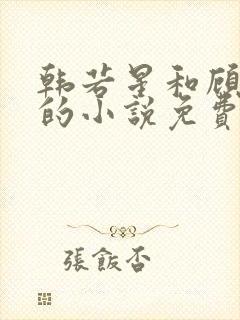 韩若星和顾
的小説免費
張飯否